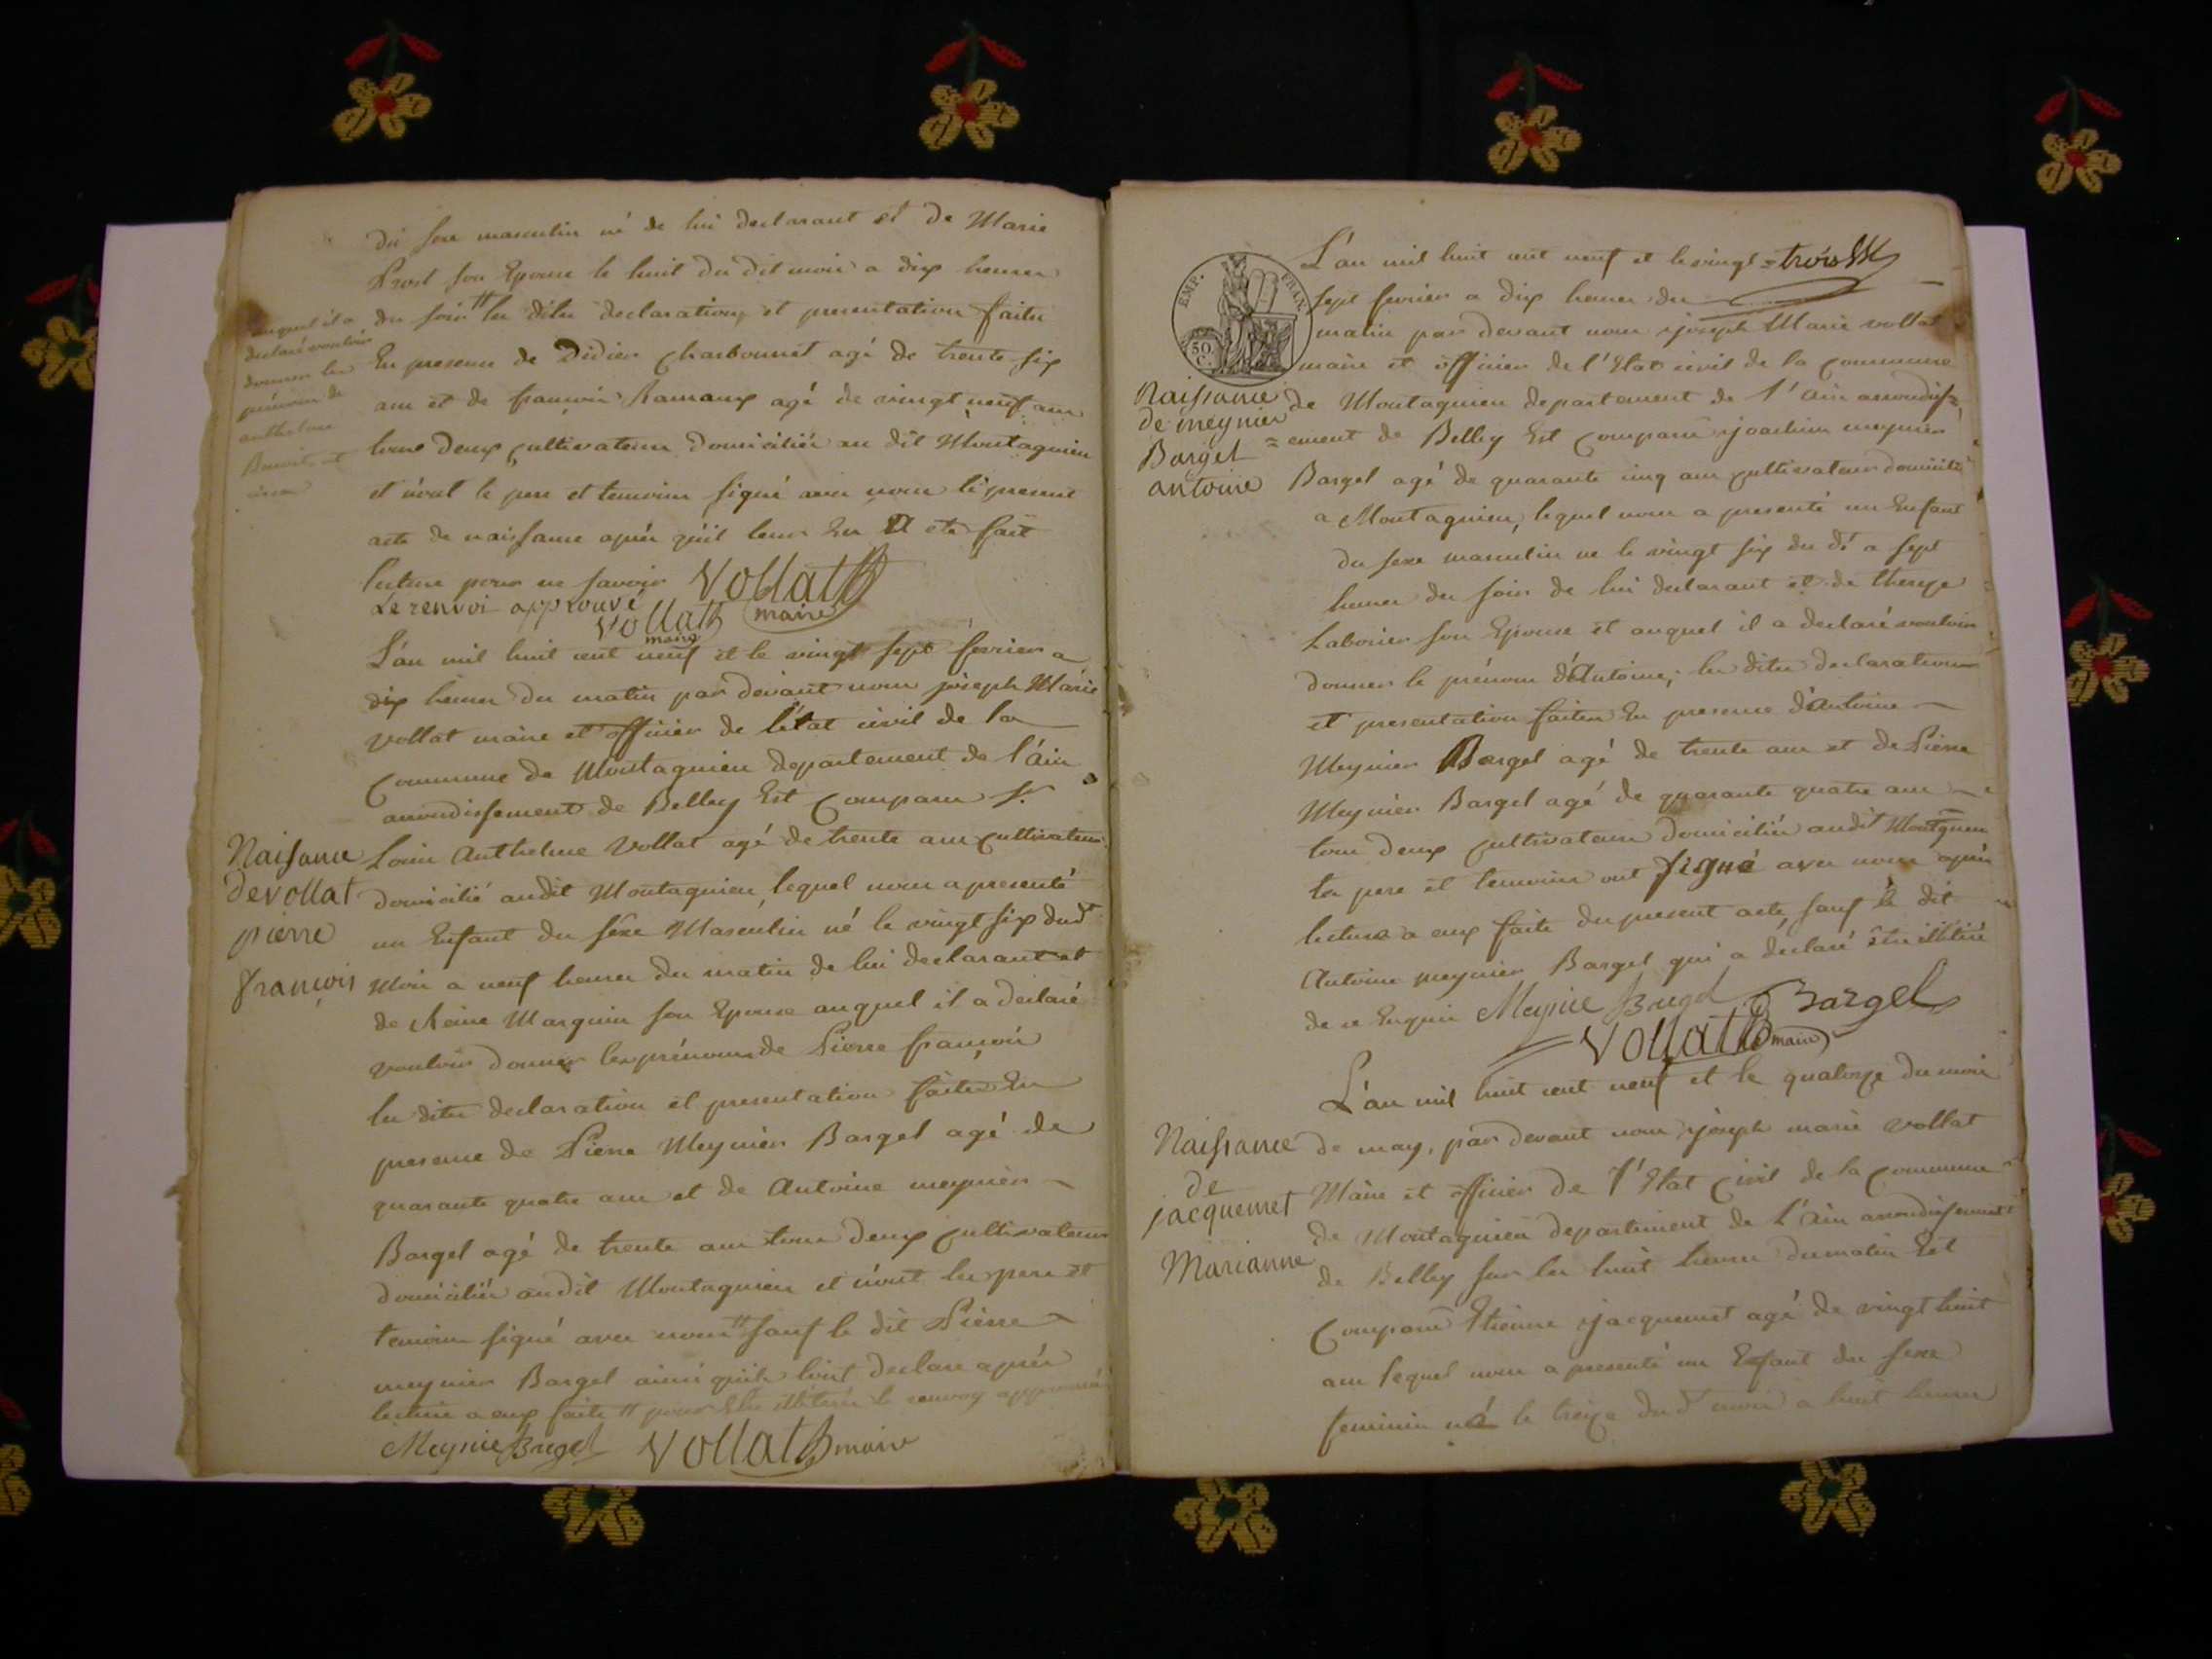 du sexe masculin né de lui declarant et de Marie
Prost son Epouse le huit du dit mois a dix heures
du soir # les dites declaration et presentation faites
En presence de Didier Charbonnet agé de trente six
ans et de françois Ramaux agé de vingt neuf ans
tous deux cultivateurs domiciliés au dit Montagnieu
et n'ont le pere et temoins signé avec nous le present
acte de naissance après qu'il leur En A eté fait
lecture pour ne savoir Vollat
maire
Le renvoi approuvé
Vollat
maire
auquel il a
declaré vouloir
donner les
prénoms de
anthelme
Benoit et
L'an mil huit cent neuf et le vingt sept fevrier a
dix heures du matin par devant nous joseph Marie
Vollat maire et officier de l'état civil de la
Commune de Montagnieu departement de l'Ain
arrondissement de Belley Est Comparu Sr.
Louis Anthelme Vollat agé de trente ans cultivateur
domicilié audit Montagnieu, lequel nous a presenté
un Enfant du séxe Masculin né le vingt six dudt
Mois a neuf heures du matin de lui declarant et
de Reine Marguin son Epouse auquel il a declaré
vouloir donner les prénoms de Pierre françois
les dites declaration et presentation faites En
presence de Pierre Meynier Bargel agé de
quarante quatre ans et de Antoine meynier
Bargel agé de trente ans tous deux cultivateurs
domiciliés audit Montagnieu et n'ont les pere et
temoins signé avec nous # sauf le dit Pierre
meynier Bargel ainsi qu'ils l'ont declare après
lecture a eux faite # pour Etre illitéré le renvoy approuvé
Meynie Bregel Vollat maire
Naissance
de vollat
pierre
françois
EMP. FRAN.
50 C.
L'an mil huit cent neuf et le vingt = trois
sept fevrier a dix heures du
matin par devant nous joseph Marie vollat
maire et officier de l'Etat civil de la Commune
de Montagnieu departement de l'Ain arrondiss=
=ement de Belley Est Comparu joachim meynier
Bargel agé de quarante cinq ans cultivateur domicilié
a Montagnieu, lequel nous a presenté un Enfant
du sexe masculin ne le vingt six du dt a sept
heures du soir de lui declarant et de thereze
Laborier son Epouse et auquel il a declaré vouloir
donner le prénom d'Antoine, les dites declaration
et presentation faites En presence d'Antoine
Meynier Bargel agé de trente ans et de Pierre
Meynier Bargel agé de quarante quatre ans
tous deux cultivateurs domiciliés audit Montgnieu
les pere et temoins ont signé avec nous après
lecture a eux faite du present acte, sauf le dit
Antoine meynier Bargel qui a déclaré être illitéré
de ce Enquis Meynie Bregel Bargel
Vollat maire
Naissance
de meynier
Bargel
antoine
L'an mil huit cent neuf et le quatorze du mois
de may, par devant nous joseph marie vollat
Maire et officier de l'Etat Civil de la Commune
de Montagnieu departement de l'Ain arrondissement
de Belley sur les huit heures du matin Est
Comparu Etienne jacquemet agé de vingt huit
ans lequel nous a presenté un Enfant du sexe
feminin né le treize dudt mois a huit heures
Naissance
de
jacquemet
Marianne